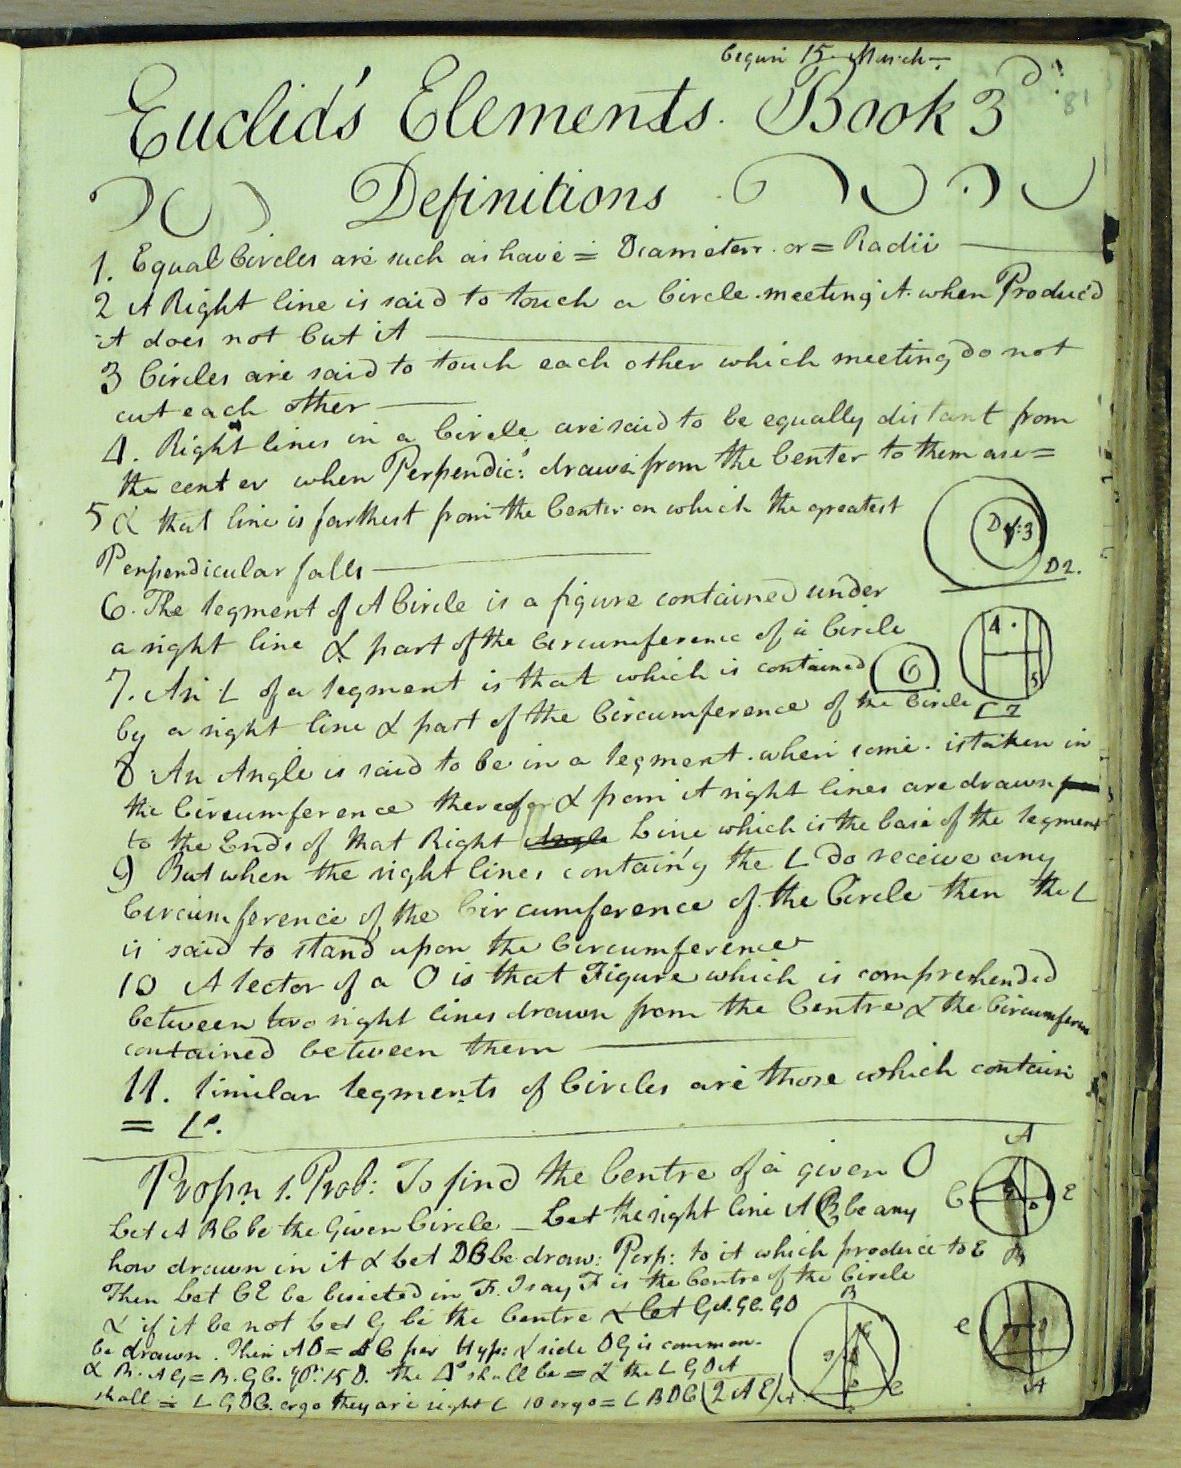 begun 15 March
81
Euclid's Elements. Book 3d:
Definitions
1. Equal Circles are such as have = Diameters or = Radii
2 A Right line is said to touch a Circle meeting it when Produc'd
it does not Cut it
3 Circles are said to touch each other which meeting do not
cut each other
4. Right lines in a Circle are said to be equally distant from
the center when Perpendic:s drawn from the Center to them are =
5 & that line is farthest from the Center on which the greatest
Perpendicular falls
D 3
D 2.
6. The Segment of A Circle is a figure contained under
a right line & part of the Circumference of a Circle
4
5
7. An L of a Segment is that which is contained
6
by a right line & part of the Circumference of the Circle
L 7
8 An Angle is said to be in a Segment when some . is taken in
the Circumference thereof & from it right lines are drawn
to the Ends of that Right Angle Line which is the base of the Segment
9 But when the right lines contain'g the L do receive any
Circumference of the Circumference of the Circle then the L
is said to stand upon the Circumference
10 A Sector of a O is that Figure which is comprehended
between two right lines drawn from the Centre & the Circumferen
contained between them
11. Similar Segments of Circles are those which contain
= Ls.
Propn 1. Prob: To find the Centre of a given O
A
C
E
B
Let A B C be the Given Circle — Let the right line A B be any
how drawn in it & Let DB be draw: Perp: to it which produce to E
Then Let CE be bisected in F. I say F is the Centre of the Circle
& if it be not Let G be the Centre & Let GA. GC. GD
B
e
be drawn. Then AD = AC per Hyp: & side DG is common.
& B. AG = B. GC. yo: 15 D. the Δs shall be = & the L GDA
A
shall = L GDC. ergo they are right L 10 ergo = L BDC (2 A E)